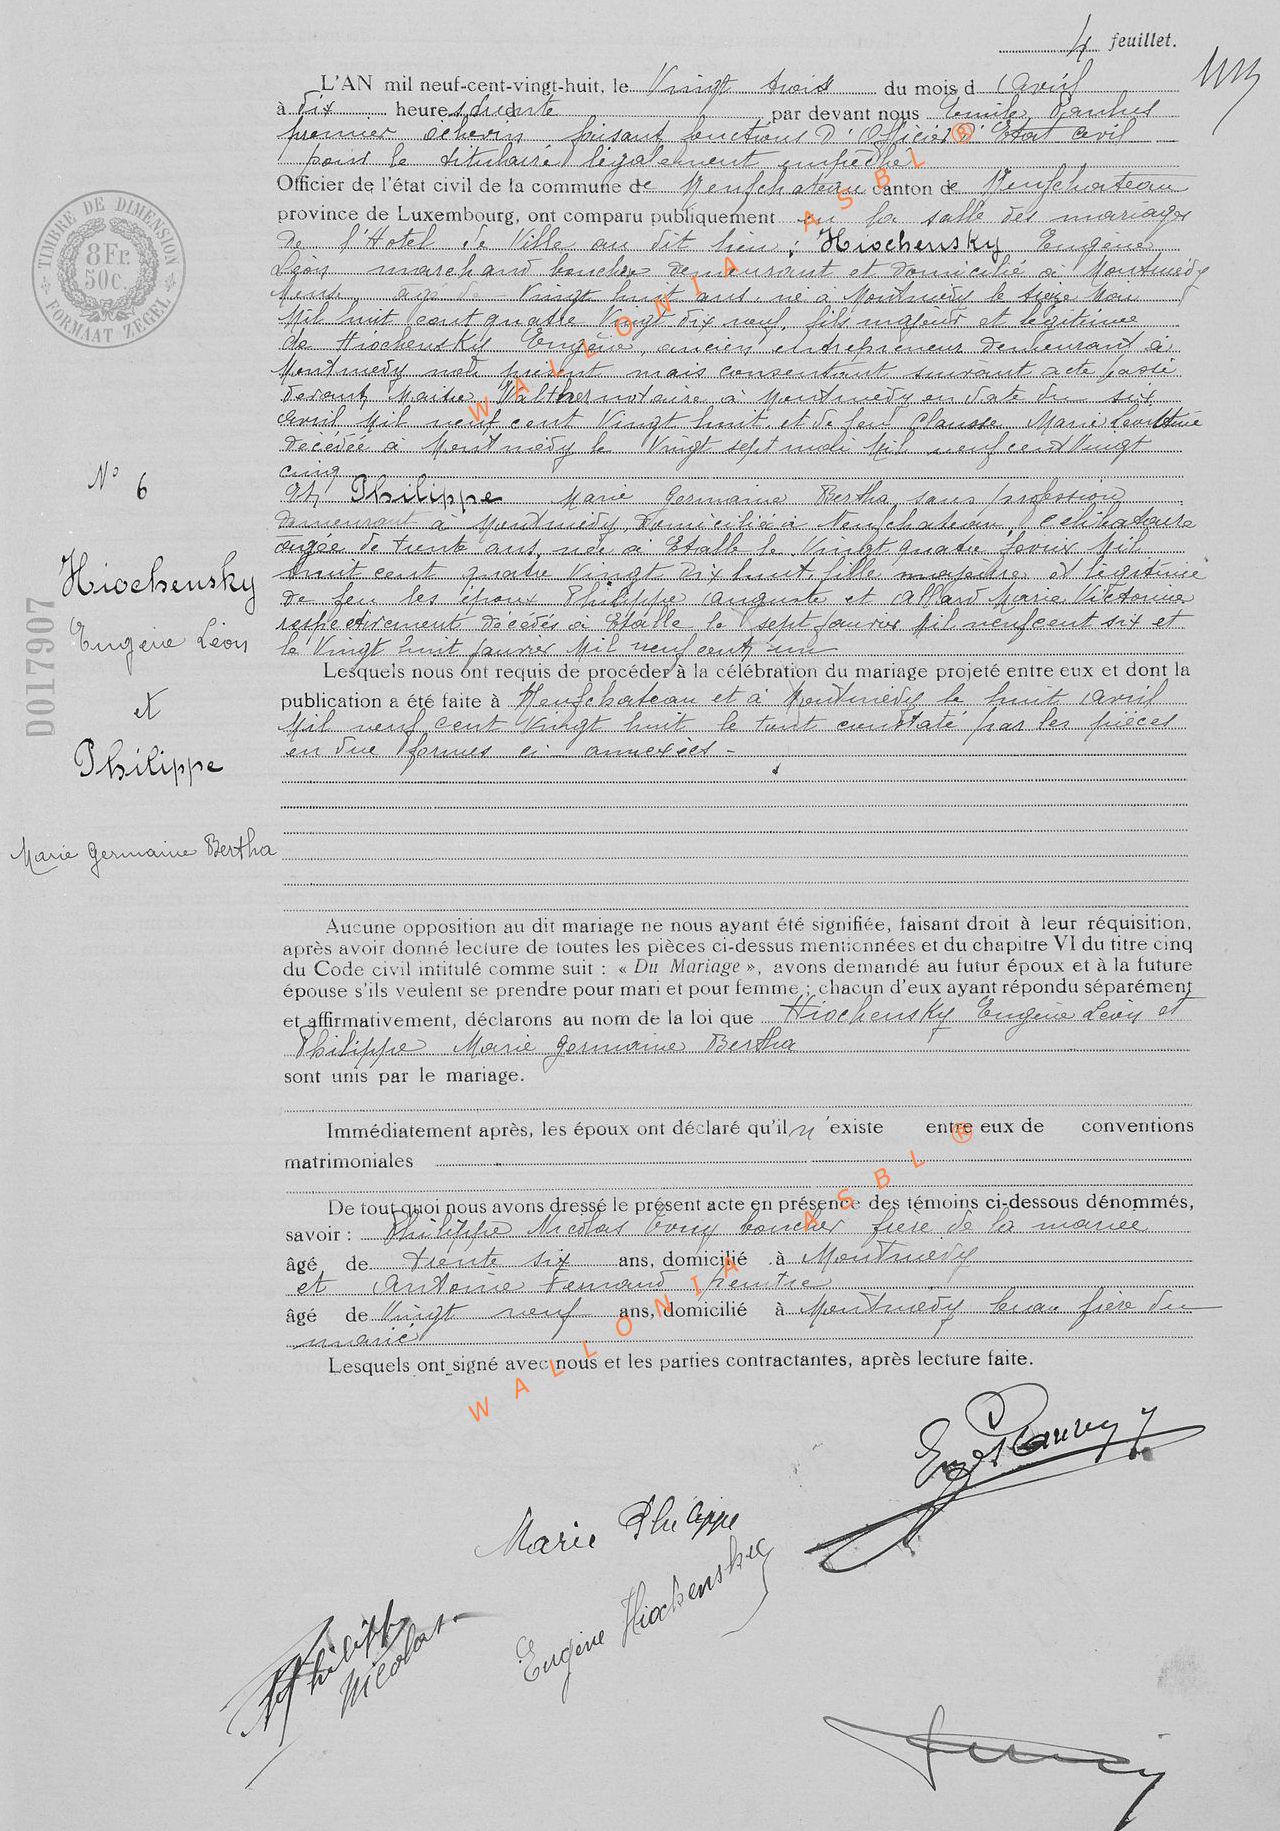 4 feuillet.
L'AN mil neuf-cent-vingt-huit, le Vingt trois du mois d avril
à dix heures trente par devant nous Emile
premier échevin faisant fonctions d'Officier d'Etat civil
pour le titulaire légalement empêché
Officier de l'état civil de la commune de Neufchateau canton de Neufchateau
province de Luxembourg, ont comparu publiquement en la salle des mariages
de l'Hotel de Ville au dit lieu : Hiochensky Eugène
Léon marchand boucher demeurant et domicilié à Montmédy
Meuse agé de Vingt huit ans né à Montmédy le treize Mai
Mil huit cent quatre Vingt dix neuf, fils majeur et légitime
de Hiochensky Eugène, ancien entrepreneur demeurant à
Montmédy non présent mais consentant suivant acte passé
devant Maitre Walther notaire à Montmédy en date du six
avril Mil neuf cent Vingt huit et de feu Clausse Marie Léontine
décédée à Montmédy le Vingt sept mai Mil neuf cent Vingt
cinq
Et Philippe Marie Germaine Bertha sans profession
demeurant à Montmédy, domiciliée à Neufchateau, célibataire
agée de trente ans, née à Etalle le Vingt quatre février Mil
huit cent quatre Vingt dix huit, fille majeure et légitime
de feu les époux Philippe Auguste et Allard Marie Victorine
respectivement décédés à Etalle le sept janvier Mil neuf cent six et
le Vingt huit janvier Mil neuf cent un
Lesquels nous ont requis de procéder à la célébration du mariage projeté entre eux et dont la
publication a été faite à Neufchateau et à Montmédy le huit avril
Mil neuf cent Vingt huit le tout constaté par les pièces
en due formes ci-annexées -
Aucune opposition au dit mariage ne nous ayant été signifiée, faisant droit à leur réquisition,
après avoir donné lecture de toutes les pièces ci-dessus mentionnées et du chapitre VI du titre cinq
du Code civil intitulé comme suit : « Du Mariage », avons demandé au futur époux et à la future
épouse s'ils veulent se prendre pour mari et pour femme ; chacun d'eux ayant répondu séparément
et affirmativement, déclarons au nom de la loi que Hiochensky Eugène Léon et
Philippe Marie Germaine Bertha
sont unis par le mariage.
Immédiatement après, les époux ont déclaré qu'il n'existe entre eux de conventions
matrimoniales
De tout quoi nous avons dressé le présent acte en présence des témoins ci-dessous dénommés,
savoir : Philippe Nicolas boucher frère de la mariée
âgé de trente six ans, domicilié à Montmédy
et Antoine Fernand peintre
âgé de Vingt neuf ans, domicilié à Montmédy beau frère du
marié
Lesquels ont signé avec nous et les parties contractantes, après lecture faite.
Marie Philippe
Eugène Hiochensky
Philippe
Nicolas
TIMBRE DE DIMENSION
8 Fr.
50c.
FORMAAT ZEGEL
N° 6
Hiochensky
Eugène Léon
et
Philippe
Marie Germaine Bertha
D017907
WALLONIA ASBL ®
WALLONIA ASBL ®